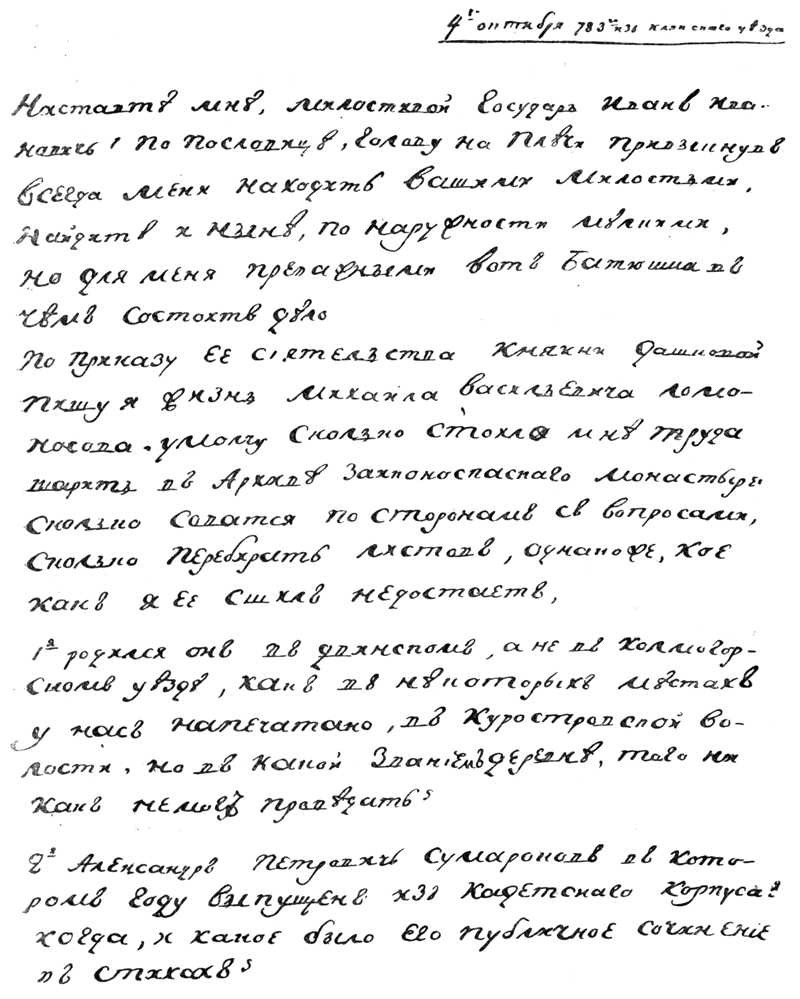 4го октября 783го изъ клинскаго уѣзда
Нистаптѣ мнѣ, милостивой Государь Иванъ Ива-
новичь! По Пословицѣ, Голову на Плѣчи Привзкнувъ
всегда меня находитъ вашими Милостьми,
Найдитѣ и нынѣ, по наружности мѣлкими,
но для меня преважными вотъ Батюшка въ
чѣмъ состоитъ дѣло
По Приказу Ее Сіятельства Княини Дашковой
Пишу я жизнь Михаила Васильевича Ломо-
носова. умолчу Сколько Стоило мнѣ труда
шарить въ Архивѣ Заиконоспаснаго Монастыре
Сколько Соватся по сторонамъ съ вопросами,
Сколько Перебирать листовъ, однакоже, кое
какъ я Ее Сшилъ недостаетъ,
1я родился онъ въ двинскомъ, а не въ Холмогор-
скомъ уѣздѣ, какъ въ нѣкоторыхъ мѣстахъ
у насъ напечатано, въ Куростровской во-
лости. но въ какой Званіемъ деревнѣ, того ни
какъ немогу провѣдать?
2я Александръ Петровичь Сумароковъ въ кото-
ромъ Году выпущенъ изъ Кадетскаго Корпуса?
когда, и какое было Его публичное Сочиненіе
въ Стихахъ?